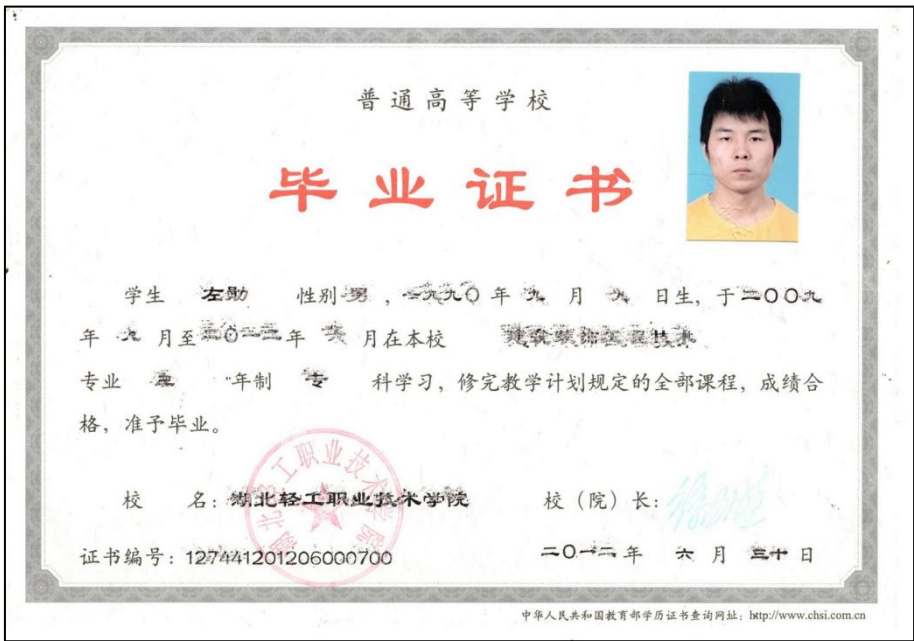 普通高等学校
毕业证书
学生 左勋 性别 男，一九九〇年 九 月 九 日生，于二〇〇九
年 九 月至二〇一二年 六 月在本校 建筑装饰工程技术
专业 三 年制 专 科学习，修完教学计划规定的全部课程，成绩合
格，准予毕业。
校 名：湖北轻工职业技术学院 校（院）长：
湖北轻工职业技术学院
证书编号：127441201206000700 二〇一二年 六 月 三十 日
中华人民共和国教育部学历证书查询网址：http://www.chsi.com.cn